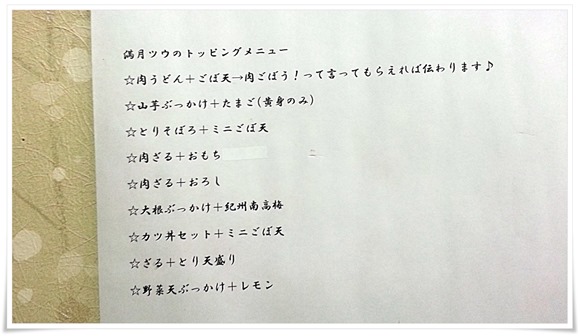 満月ツウのトッピングメニュー
☆肉うどん＋ごぼ天→肉ごぼう！って言ってもらえれば伝わります♪
☆山芋ぶっかけ＋たまご(黄身のみ)
☆とりそぼろ＋ミニごぼ天
☆肉ざる＋おもち
☆肉ざる＋おろし
☆大根ぶっかけ＋紀州南高梅
☆カツ丼セット＋ミニごぼ天
☆ざる＋とり天盛り
☆野菜天ぶっかけ＋レモン